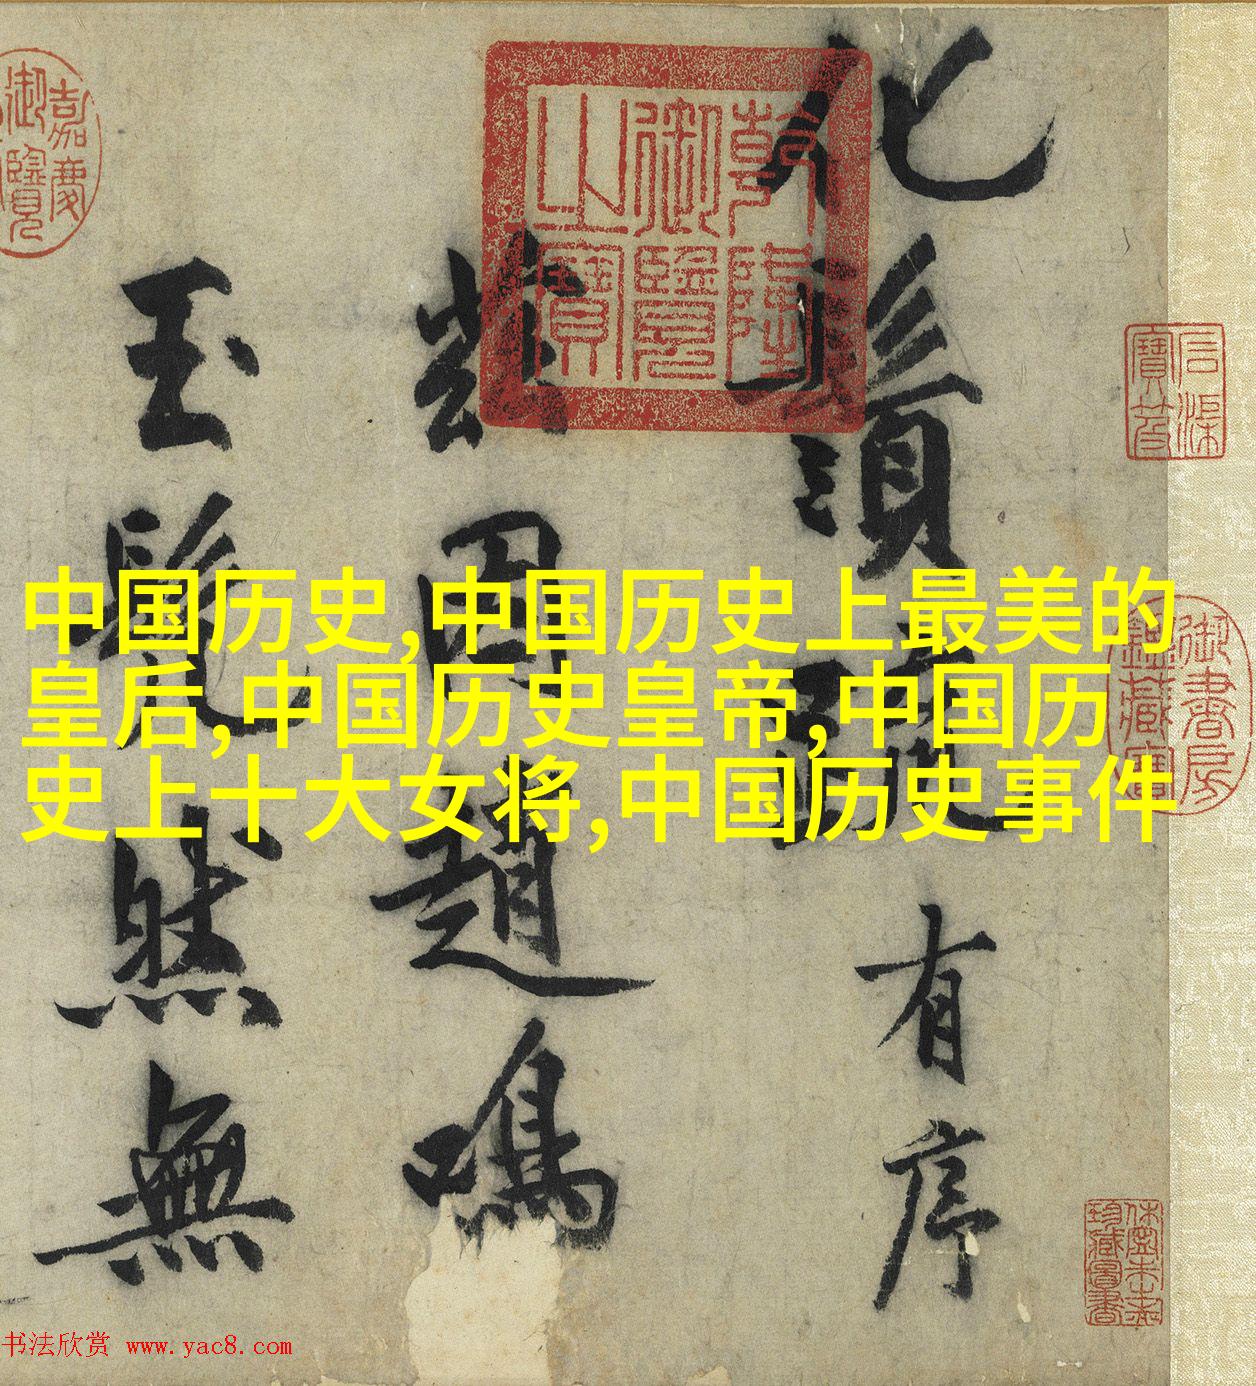 化鬚疏有序
兹因趙鳴
玉髡然無
乾隆御覽之寶
嘉慶御覽
石渠寶笈
御書房鑑藏寶
休寧朱之赤珍藏圖書
中国历史,中国历史上最美的
皇后,中国历史皇帝,中国历
史上十大女将,中国历史事件
书法欣赏 www.yac8.com